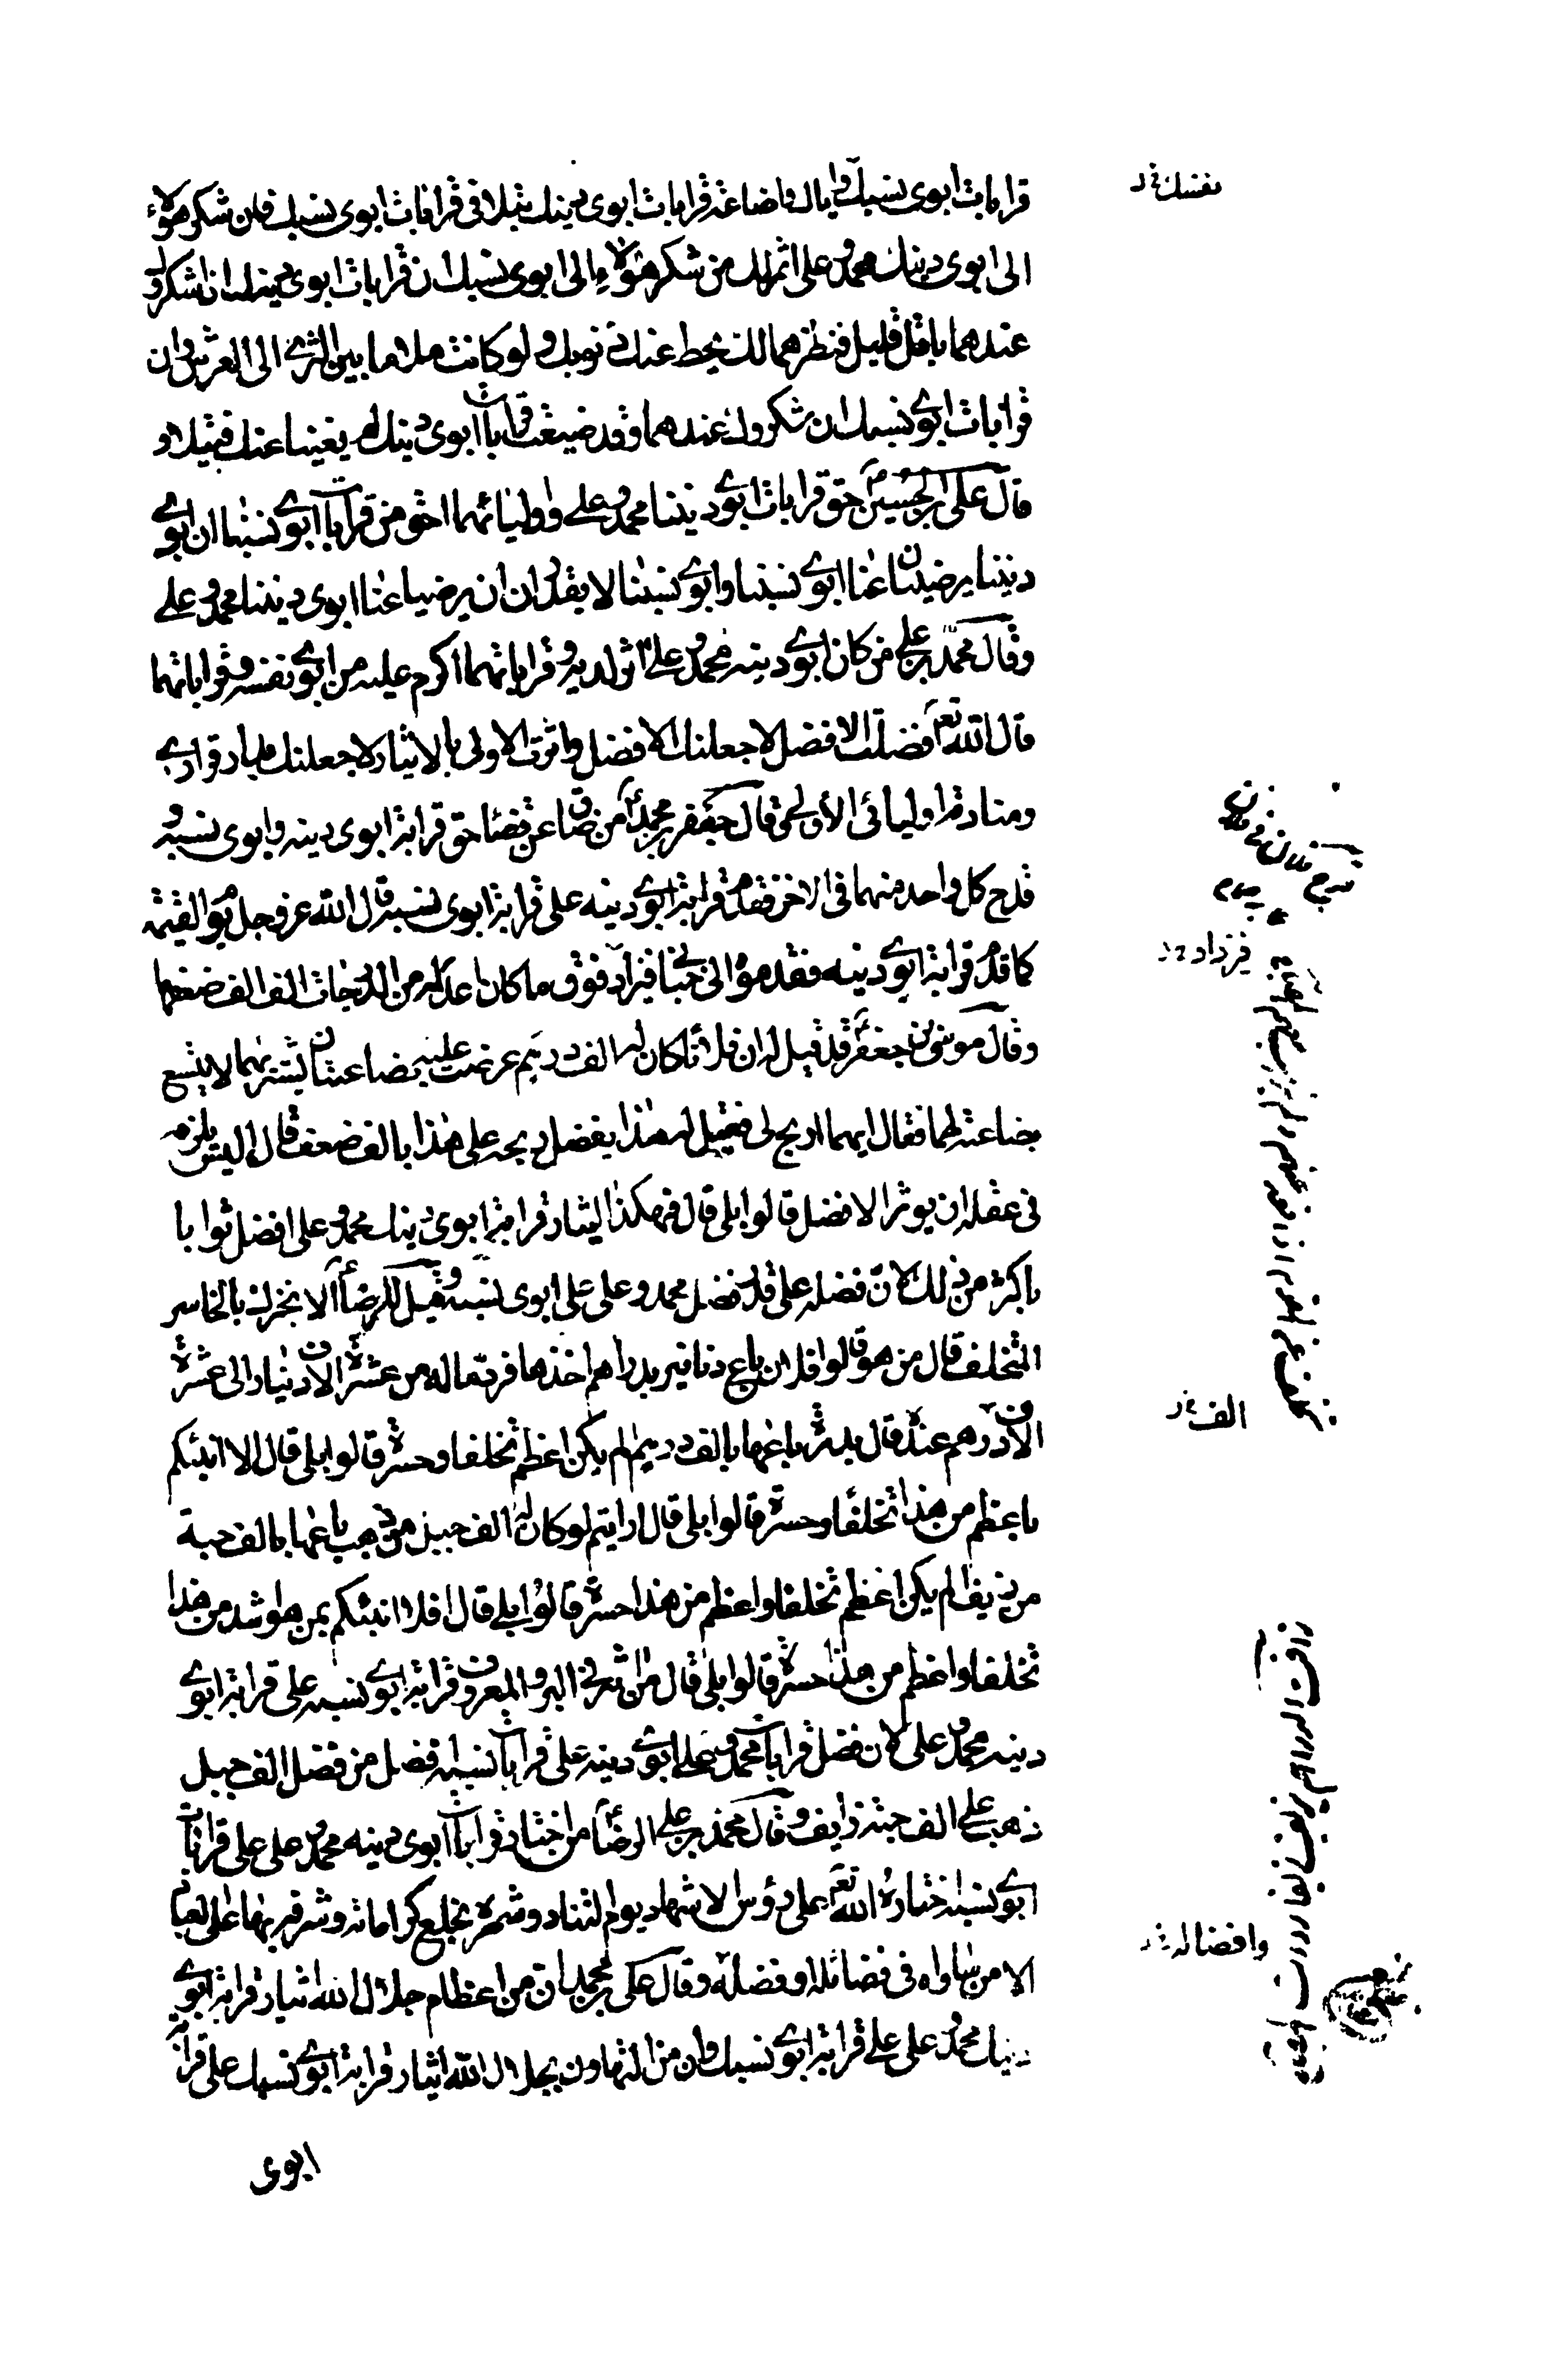 قرابات ابوی نسبك وایاك واضاعة قرابات ابوی دینك بتلافی قرابات ابوی نسبك فان شكر هؤلاء
الی ابوی دینك محمد وعلی اثمر لك من شكر هؤلاء الی ابوی نسبك ان قرابات ابوی دینك اذا شكروك
عندهما باقل قلیل فنظرهما لك یحط عنك ذنوبك ولو كانت ملاء ما بین الثری الی العرش وان
قرابات ابوی نسبك ان شكروك عندهما وقد ضیعت قرابات ابوی دینك لم یغنیا عنك فتیلا و
قال علی بن الحسین ع حق قرابات ابوی دیننا محمد وعلی واولیائهما احق من قرابات ابوی نسبنا ان ابوی
دیننا یرضیان عنا ابوی نسبنا وابوی نسبنا لا یقدران ان یرضیا عنا ابوی دیننا محمد وعلی
وقال محمد بن علی من كان ابوی دینه محمد وعلی اثر لدیه وقراباتهما اكرم علیه من ابوی نفسه وقراباتهما
قال الله تعم فضلت الافضل لاجعلنك الافضل واثرت الاولی بالایثار لاجعلنك بدار قراری
ومنادمة اولیائی الاولی وقال جعفر بن محمد ع من ضاق عن قضاء حق قرابة ابوی دینه وابوی نسبه و
قدح كل واحد منهما فی الاخر فقدم قرابة ابوی دینه علی قرابة ابوی نسبه قال الله عز وجل یوم القیمة
كما قدم قرابة ابوی دینه فقدموه الی جنانی فیزاد فوق ما كان اعد له من الدرجات الف الف ضعفها
وقال موسی بن جعفر ع وقد قیل له ان فلانا كان له الف درهم عرضت علیه بضاعتان یشتریهما لا یتسع
بضاعته لهما فقال ایهما اربح لی فقیل له هذا یفضل ربحه علی هذا بالف ضعف قال الیس یلزمه
فی عقله ان یوثر الافضل قالوا بلی قال فهكذا ایثار قرابة ابوی دینك محمد وعلی افضل ثوابا
باكثر من ذلك لان فضله علی قدر فضل محمد وعلی علی ابوی نسبه وقیل للرضا ع الا نخبرك بالخاسر
المتخلف قال من هو قالوا فلان باع دنانیر بدراهم اخذها فرد ماله من عشرة الاف دینار الی عشرة
الاف درهم عنده قال بدرة باعها بالف درهم الم یكن اعظم تخلفا وحسرة قالوا بلی قال الا انبئكم
باعظم من هذا تخلفا وحسرة قالوا بلی قال ارایتم لو كان له الف جبل من ذهب باعها بالف حبة
من زیف الم یكن اعظم تخلفا واعظم من هذا حسرة قالوا بلی قال افلا انبئكم بمن هو اشد من هذا
تخلفا واعظم من هذا حسرة قالوا بلی قال من اثر فی البر والمعروف قرابة ابوی نسبه علی قرابة ابوی
دینه محمد وعلی لان فضل قرابات محمد وعلی ابوی دینه علی قرابات نسبه افضل من فضل الف جبل
ذهب علی الف حبة زایف وقال محمد بن علی الرضا ع من اختار قرابات ابوی دینه محمد وعلی علی قرابات
ابوی نسبه اختاره الله تعم علی رؤس الاشهاد یوم التناد وشهره بخلع كراماته وشرفه بها علی العباد
الا من ساواه فی فضائله او فضله وقال علی بن محمد ان من اعظام جلال الله ایثار قرابة ابوی
دینك محمد وعلی علی قرابة ابوی نسبك وان من التهاون بجلال الله ایثار قرابة ابوی نسبك علی قرابة
ابوی
نفسك
فیزداد
الف
وافضاله